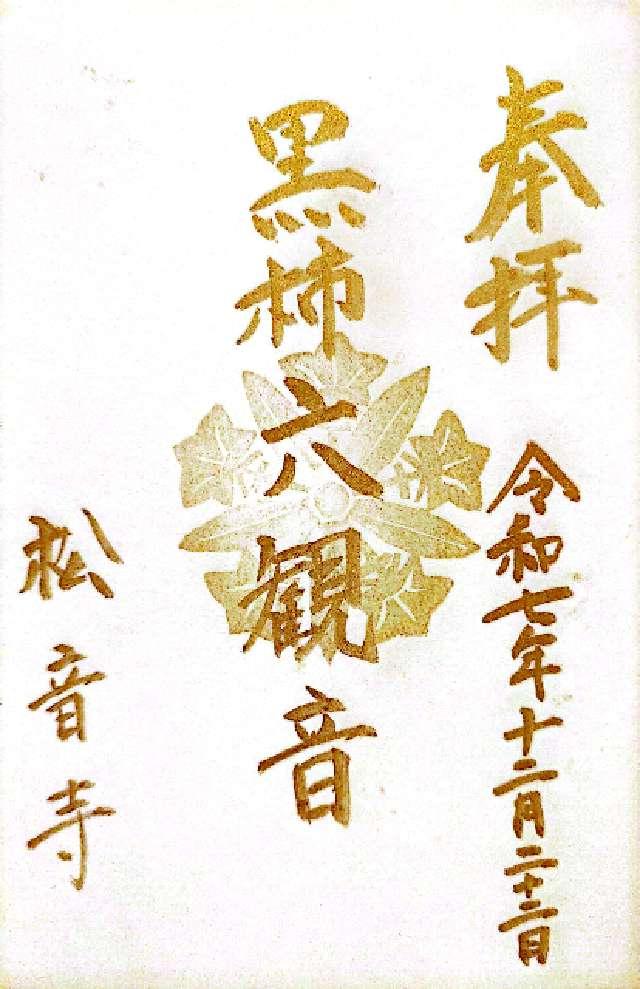 奉拝
令和七年十二月二十二日
黒柿六観音
松音寺